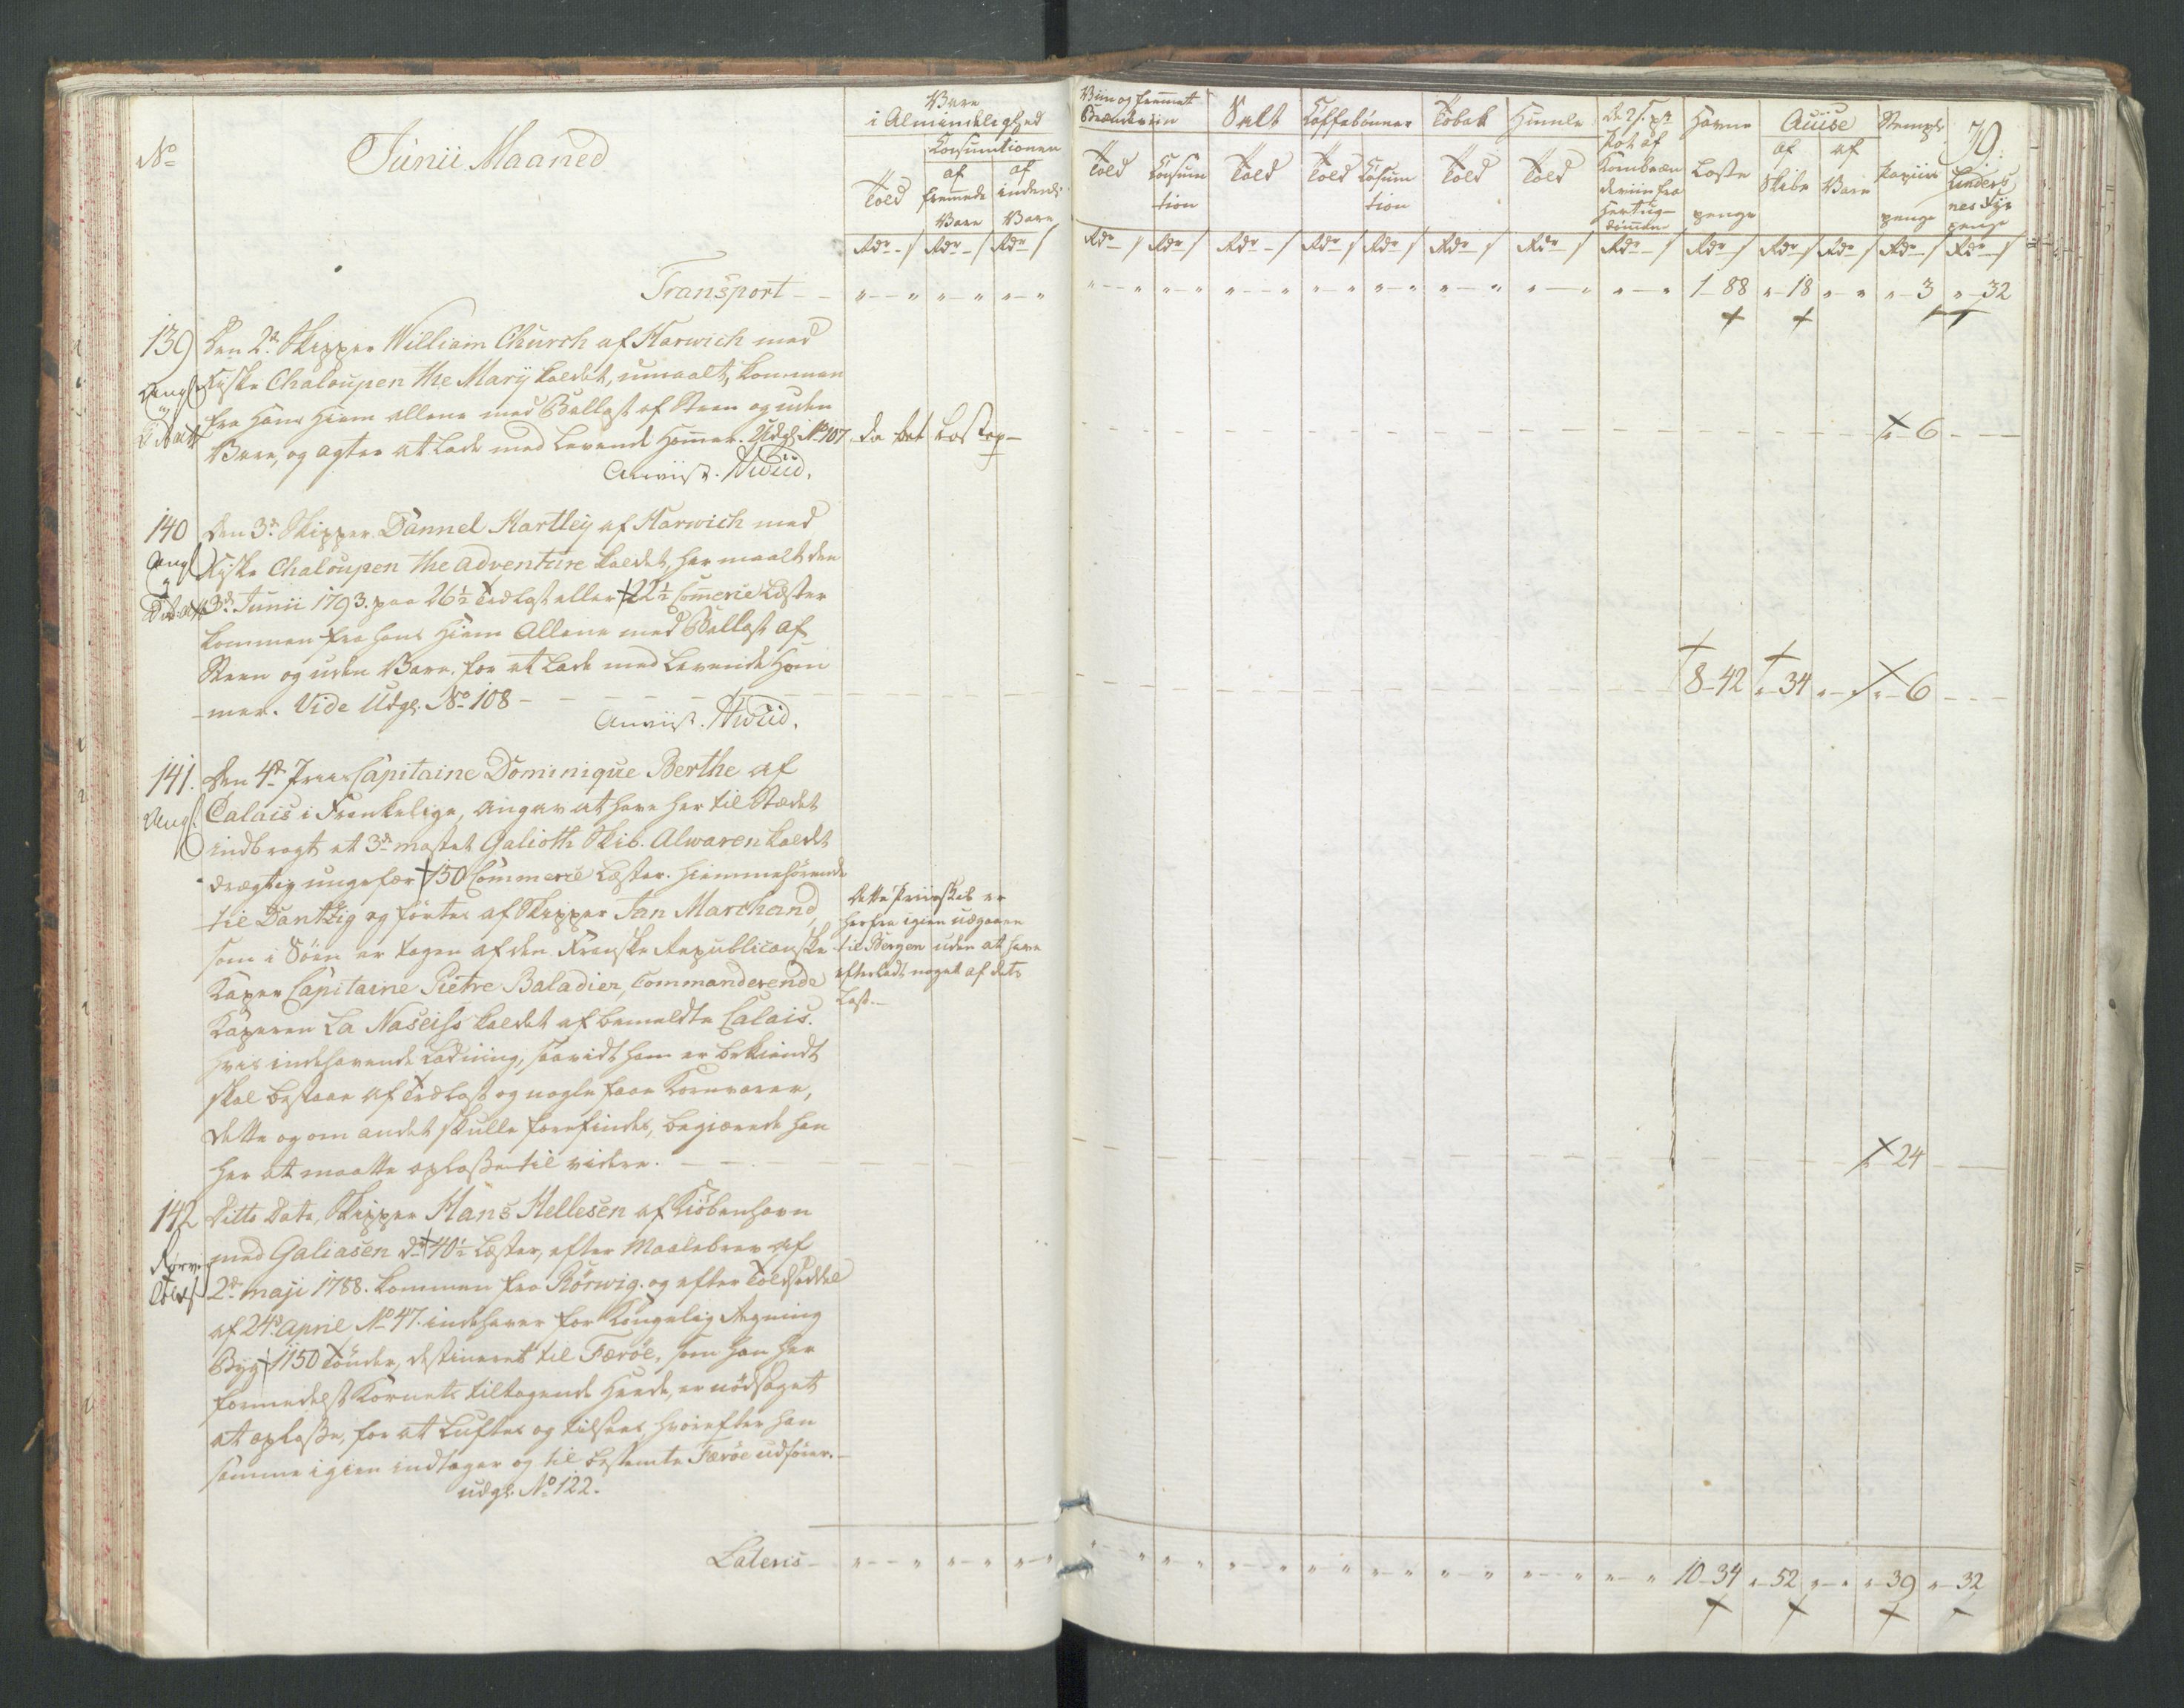 No
Junii Maaned
Vare
i Almindelighed
Told
Consumtionen
af
fremede
Vare
af
indenl:
Vare
Rdr ß Rdr ß Rdr ß
Viin og fremmet
Brændeviin
Told
Consum
tion
Salt
Told
Coffebönner
Told
Consum
tion
Tobak
Told
Humle
Told
De 2 ß pr
Pot af
Kornbræn
deviin fra
Hertug-
dömmene
Havne
Laste
penge
Acciise
af
Skibe
af
Vare
Stempl:
Papiirs
penge
79.
Linders
nes Fyr
penge
Rdr ß Rdr ß Rdr ß Rdr ß Rdr ß Rdr ß Rdr ß Rdr ß Rdr ß Rdr ß Rdr ß Rdr ß Rdr ß
Transport - - " - " " - " " - " " - " " - " " - " " - " " - " " - " " - " " - " 1-88 "-18 " - " "-3 "-32
139 Den 2d Skipper William Church af Harwich med
Engl Fiske Chaloupen the Marÿ kaldet, umaalt, kommen
fra Hans Hiem allene med Ballast af Steen og uden
Vare, og agter at lade med levende Hommer. Udgl. No 107 da bet Lastep - "-6
Anviist. Awiid.
140 Den 3d Skipper Dannel Hartleÿ af Harwich med
Engl Fiske Chaloupen the Adventure kaldet, her maalt den
3d Junii 1793. paa 26½ Trælast eller 22½ Commerce Læster
kommen fra hans Hiem Allene med Ballast af
Steen og uden Vare, for at lade med Levende Hom
mer. Vide Udgl. No 108 - 8-42 "-34 " - "-6
Anviist. Awiid.
141. Den 4d Priis Capitaine Dominique Berthe af
Engl. Calais i Frankerige, angav at have her til Stædet
indbragt et 3de mastet Galioth Skib. Alwaren kaldet
drægtig ungefær 150 Commerce Læster. Hiemmehörende
til Dantzig og föres af Skipper Jan Marchand,
som i Söen er tagen af den Franske Republicanske
Kaper Capitaine Pietre Baladier, Commanderende
Kaperen La Naseiss kaldet af bemeldte Calais.
Hvis indehavende Ladning, saavidt ham er bekiendt
skal bestaae af Trælast og nogle faae Kornvarer,
dette og om andet skulle forefindes, begiærede han
her at maatte oplosse til videre. - "-24
Dette Priisskib er
herfra igien udgaaen
til Bergen uden at have
efterladt noget af dets
Last.-
142 Ditto Dato, Skipper Hans Hellesen af Kiöbenhavn
med Galiasen dr 40½ Læster, efter Maalebrev af
2d maji 1788. kommen fra Rörwig. og efter Toldseddel
af 24d April No 47. indehaver for Kongelig Regning
Byg 1150 Tönder, destineret til Færöe, som han her
formedelst Kornets tiltagende Heede, er nödsaget
at oplosse, for at Luftes og tilsees, hvorefter han
samme igien indtager og til bestemte Færöe udförer.
udgl. No 122.
Lateris - " - " " - " " - " " - " " - " " - " " - " " - " " - " " - " " - " 10-34 "-52 " - " "-39 "-32